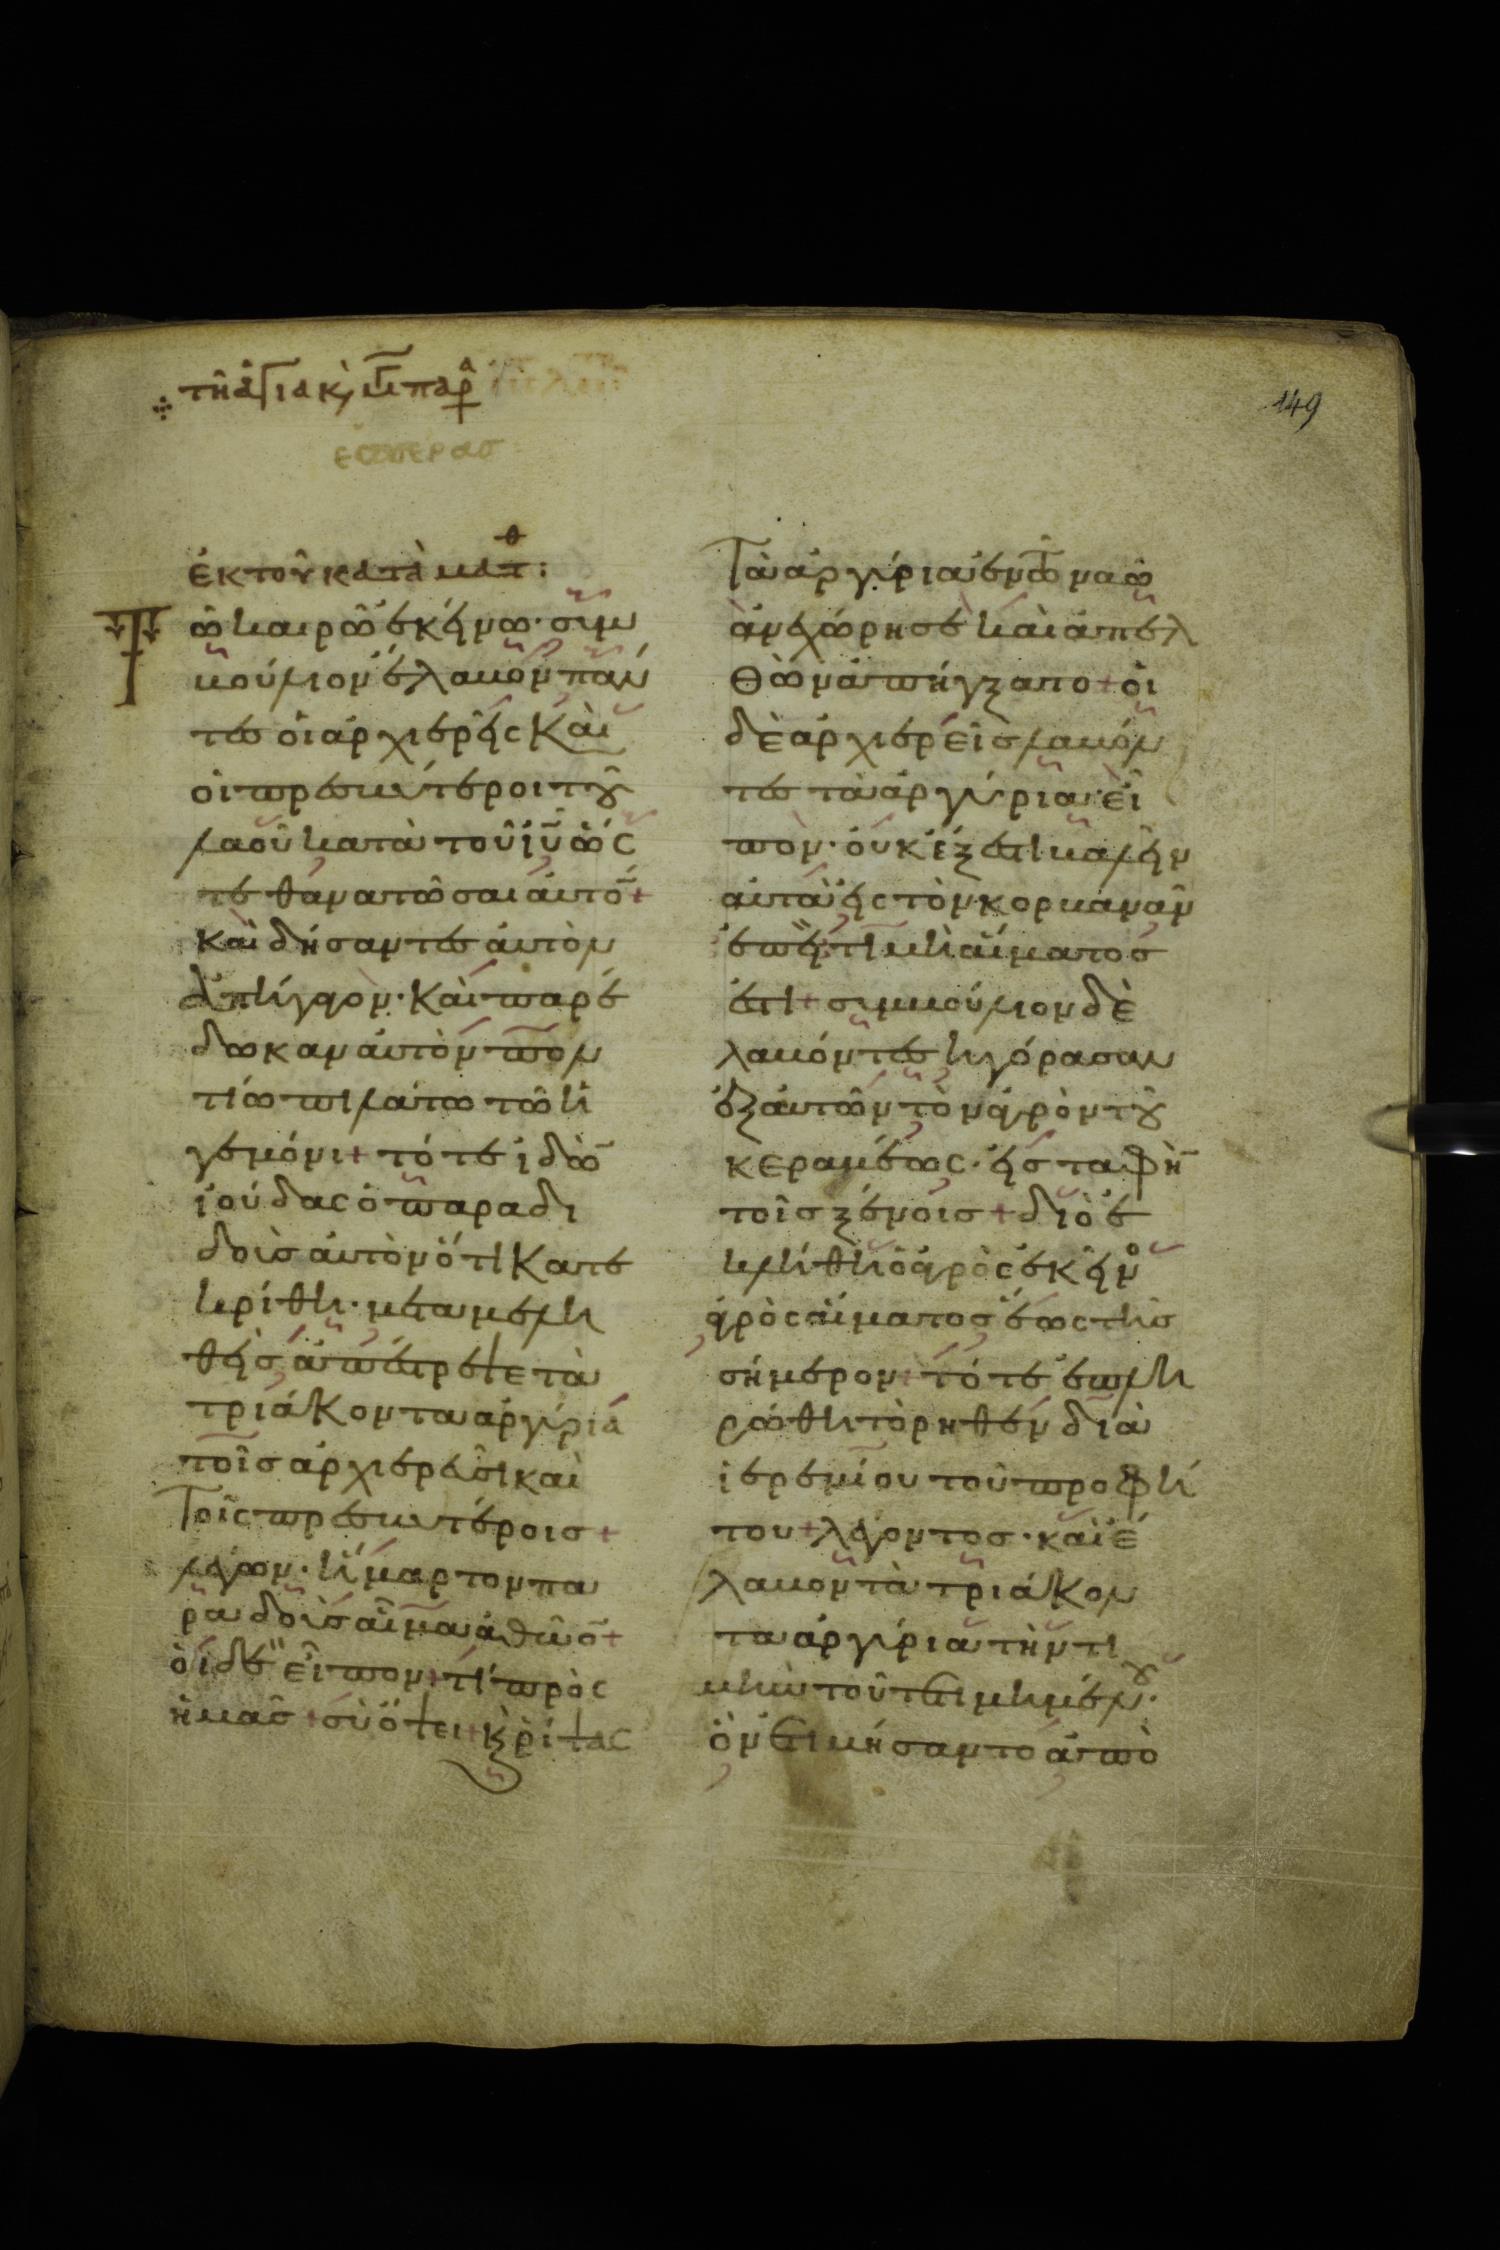 τῆ ἁγία κ, μγ παρα
149
εσπερασ
ἐκ τοῦ κατὰ ματθ:
Τῶ καιρῶ ἐκείνω· συμ
βούλιον ἔλαβον πάν
τες οἱ ἀρχιερεῖς καὶ
οἱ πρεσβύτεροι τοῦ
λαοῦ κατὰ τοῦ ἰῦ ὥς
τε θανατῶσαι αὐτό̄+
καὶ δήσαντες αὐτὸν
ἀπήγαγον· καὶ παρέ
δωκαν αὐτὸν πον
τίω πιλάτω τῶ ἡ
γεμόνι+ τότε ἰδὼ̄
ἰούδας ὁ παραδι
δοὺς αὐτὸν ὅτι κατε
κρίθη· μεταμελη
θεὶς ἀπέστρεψε τὰ
τριάκοντα ἀργύρια
τοῖς ἀρχιερεῦσι καὶ
τοῖς πρεσβυτέροις+
λέγων· ἥμαρτον πα
ραδοὺς αἷμα ἀθῶο̄+
οἱ δὲ εἶπον+ τί πρὸς
ἡμᾶς+ σὺ ὄψει+ κ, ῥίψας
τὰ ἀργύρια ἐν τῶ ναῶ
ἀνεχώρησε καὶ ἀπελ
θὼν ἀπήγξατο+ οἱ
δὲ ἀρχιερεῖς λαβόν
τες τὰ ἀργύρια εἶ
πον· οὐκ ἔξεστι βαλεῖν
αὐτὰ εἰς τὸν κορβανᾶν
ἐπεὶ τιμὴ αἵματος
ἐστι+ συμβούλιον δὲ
λαβόντες ἠγόρασαν
ἐξ αὐτῶν τὸν ἀγρὸν τοῦ
κεραμέως· εἰς ταφὴ̄
τοῖς ξένοις+ διὸ ἐ
κλήθη ὁ ἀγρὸς ἐκεῖνο
ἀγρὸς αἵματος ἕως τῆς
σήμερον+ τότε ἐπλη
ρώθη τὸ ῥηθὲν διὰ
ἰερεμίου τοῦ προφή
του+ λέγοντος· καὶ ἔ
λαβον τὰ τριάκον
τα ἀργύρια τὴν τι
μὴν τοῦ τετιμημένου·
ὃν ἐτιμήσαντο ἀπὸ